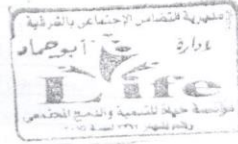 مديرية التضامن الإجتماعى بالشرقية
إدارة أبو حماد
Life
مؤسسة حياة للتنمية والدمج المجتمعى